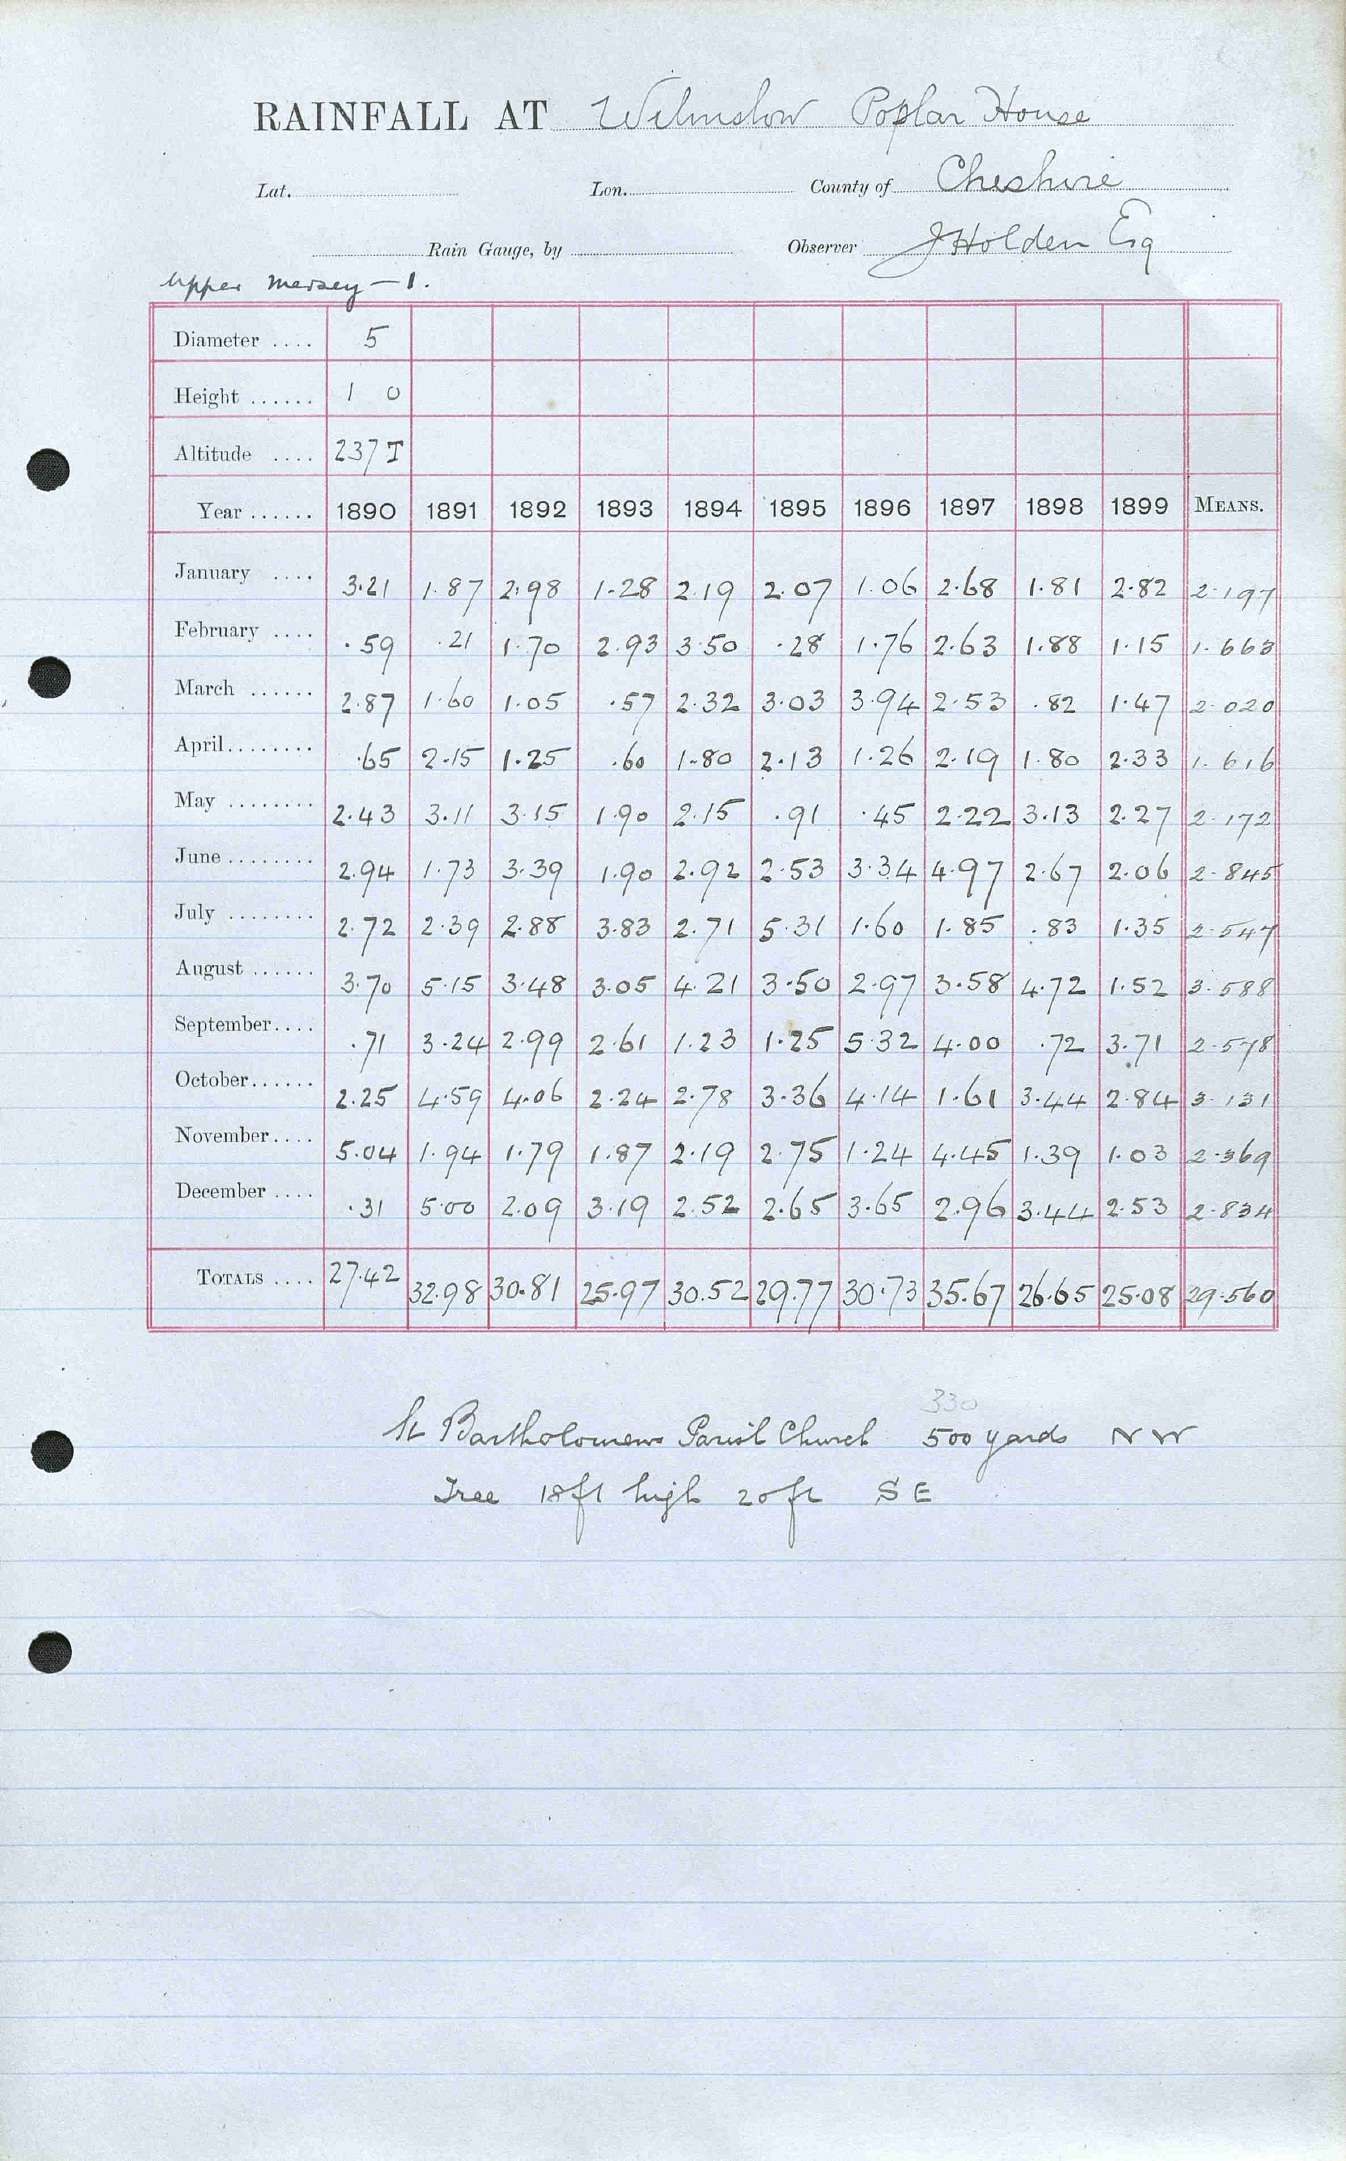 RAINFALL AT Wilmslow Poplar House
Lat. Lon. County of Cheshire
Rain Gauge, by Observer J Holden Esq
Upper Mersey — 1.
Diameter .... 5
Height ...... 1 0
Altitude .... 237 T
Year ...... 1890 1891 1892 1893 1894 1895 1896 1897 1898 1899 MEANS.
January .... 3.21 1.87 2.98 1.28 2.19 2.07 1.06 2.68 1.81 2.82 2.197
February .... .59 .21 1.70 2.93 3.50 .28 1.76 2.63 1.88 1.15 1.663
March ...... 2.87 1.60 1.05 .57 2.32 3.03 3.94 2.53 .82 1.47 2.020
April ........ .65 2.15 1.25 .60 1.80 2.13 1.26 2.19 1.80 2.33 1.616
May ........ 2.43 3.11 3.15 1.90 2.15 .91 .45 2.22 3.13 2.27 2.172
June ........ 2.94 1.73 3.39 1.90 2.92 2.53 3.34 4.97 2.67 2.06 2.845
July ........ 2.72 2.39 2.88 3.83 2.71 5.31 1.60 1.85 .83 1.35 2.547
August ...... 3.70 5.15 3.48 3.05 4.21 3.50 2.97 3.58 4.72 1.52 3.588
September .... .71 3.24 2.99 2.61 1.23 1.25 5.32 4.00 .72 3.71 2.578
October ...... 2.25 4.59 4.06 2.24 2.78 3.36 4.14 1.61 3.44 2.84 3.131
November .... 5.04 1.94 1.79 1.87 2.19 2.75 1.24 4.45 1.39 1.03 2.369
December .... .31 5.00 2.09 3.19 2.52 2.65 3.65 2.96 3.44 2.53 2.834
TOTALS .... 27.42 32.98 30.81 25.97 30.52 29.77 30.73 35.67 26.65 25.08 29.560
330
St Bartholomews Parish Church 500 yards NW
Tree 18ft high 20ft SE